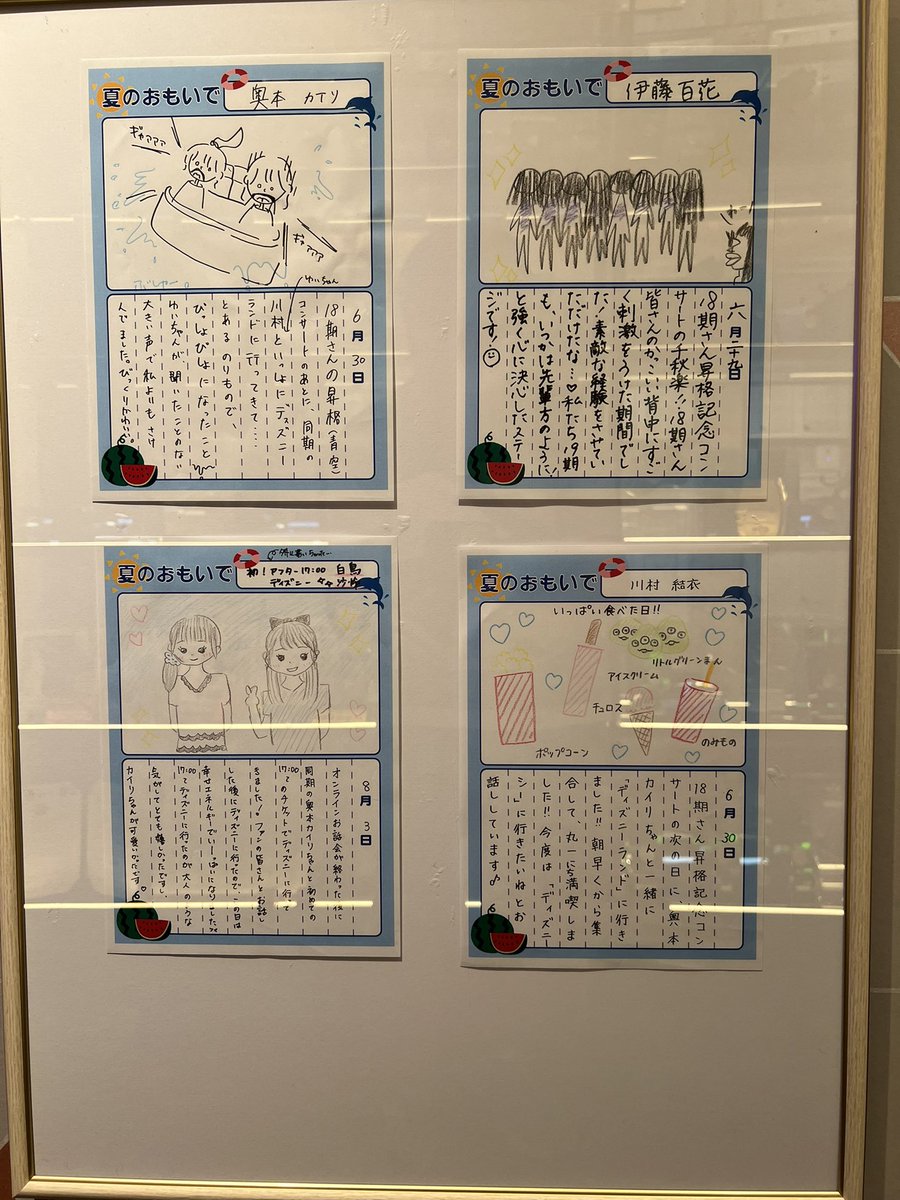 夏のおもいで
奥本 カイリ
ギャアアア
ギャアアア
ゆいちゃん
6月30日
18期さんの昇格(青空)
コンサートのあとに、同期の
川村といっしょにディズニー
ランドに行ってきて....
とあるのりもので、
びっしょびしょになったこと
ゆいちゃんが、聞いたことのない
大きい声で私よりもさけ
んでました。びっくりかわいい。
夏のおもいで
伊藤百花
六月二十九日
18期さん昇格記念コン
サートの千秋楽!!18期さん
皆さんのかっこいい背中にすご
く刺激をうけた期間でし
た!素敵な経験をさせてい
ただけたな...♡私たち19期
も、いつかは先輩方のように!
と強く心に決心したステー
ジです!
夏のおもいで
初!アフター17:00
ディズニー
白鳥
沙怜
8月3日
オンラインお話会が終わった後に
同期の奥本カイリちゃんと初めての
17:00〜のチケットでディズニーに行って
きました!ファンの皆さんとお話し
した後にディズニーに行ったので、この日は
幸せエネルギーでいーっぱいになりました
17:00〜でディズニーに行ったのが大人のような
気がしてとても嬉しかったですし、
カイリちゃんが可愛いかったです。♡
夏のおもいで
川村 結衣
いっぱい食べた日!!
リトルグリーンまん
アイスクリーム
チュロス
のみもの
ポップコーン
6月30日
18期さん昇格記念コン
サートの次の日に、奥本
カイリちゃんと一緒に
「ディズニーランド」に行き
ました!!朝早くから集
合して、丸一にち満喫しま
した!!今度は「ディズニー
シー」に行きたいねとお
話ししています♪